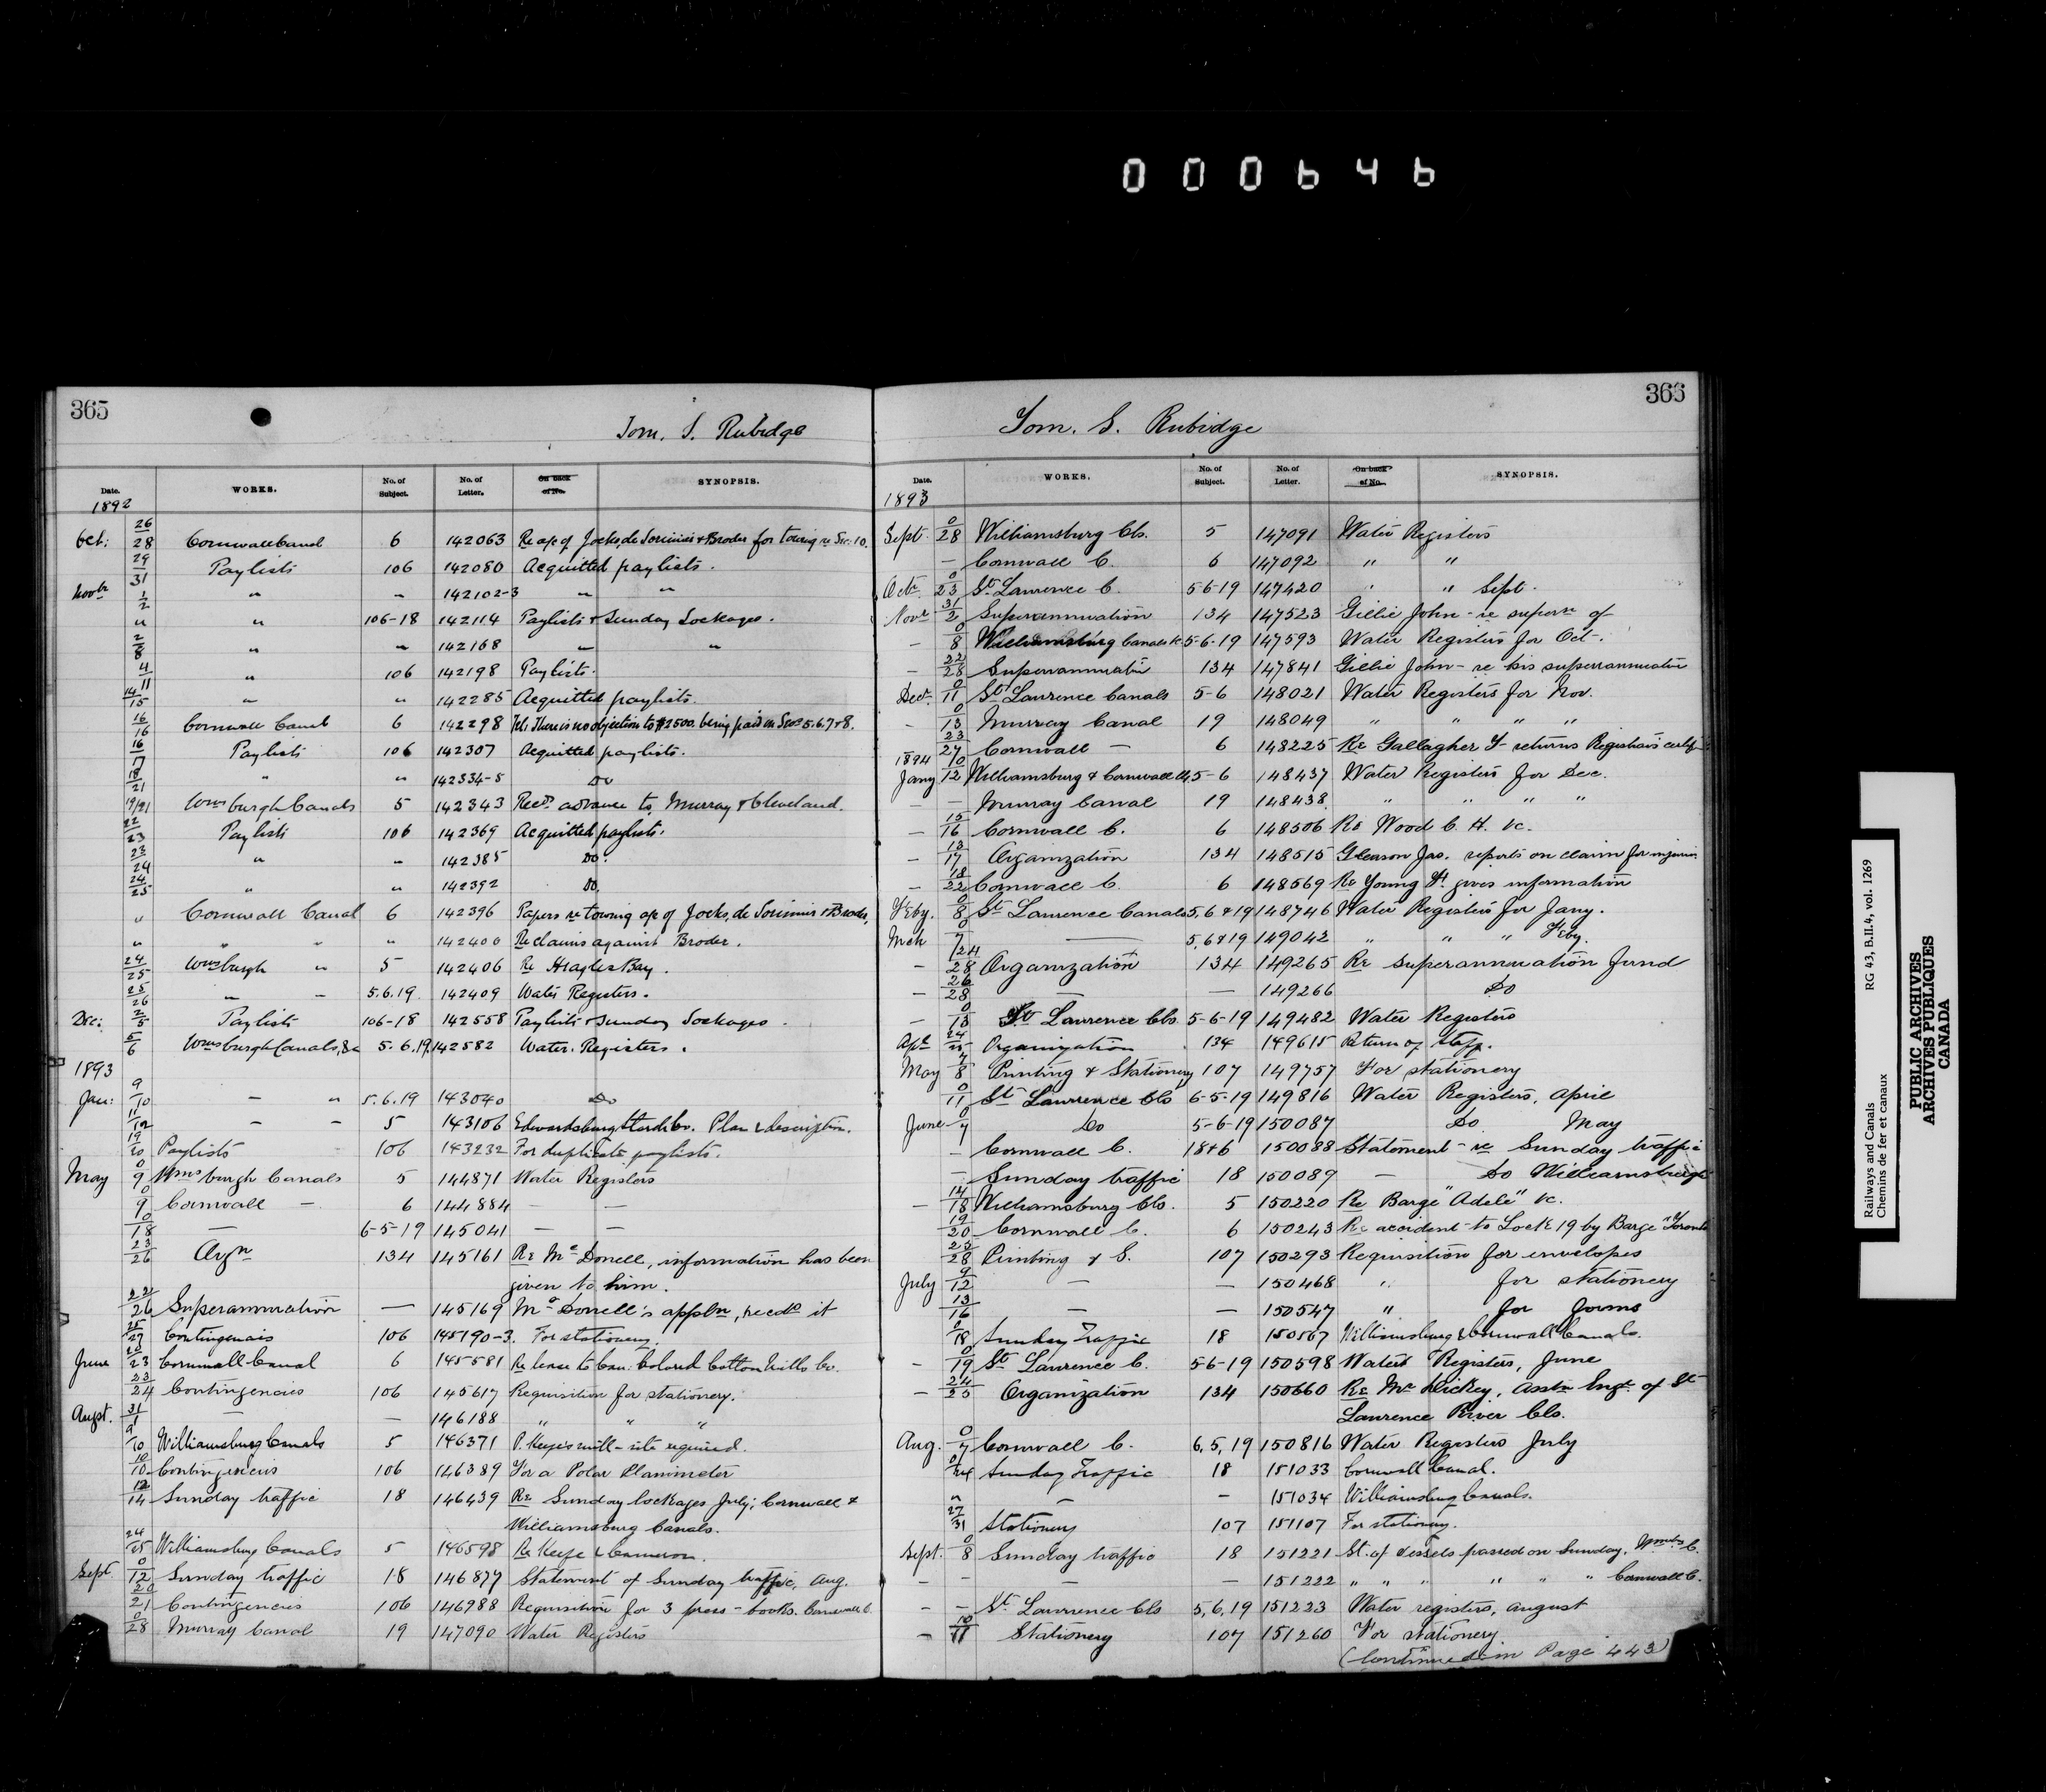 000646
365
Tom. S. Rubidge
Date. WORKS. No. of Subject. No. of Letter. On back of No. SYNOPSIS.
1892
Oct: 26/28 Cornwall Canal 6 142063 Re ap of Jocks, de Sorimier & Broder for towing re Sec. 10.
29/31 Paylists 106 142080 Acquitted paylists.
Novbr 1/2 " " 142102-3 " "
" " 106-18 142114 Paylists & Sunday Lockages.
2/8 " " 142168 " "
4/11 " 106 142198 Paylists.
14/15 " " 142285 Acquitted paylists.
16/16 Cornwall Canal 6 142298 There is no objection to $2500. being paid on Secs 5.6.7 & 8.
16/17 Paylists 106 142307 Acquitted paylists.
18/21 " " 142334-5 Do
19/21 Wmsburgh Canals 5 142343 Recd. advance to Murray & Cleveland.
22/23 Paylists 106 142369 Acquitted paylists.
23/24 " " 142385 Do.
24/25 " " 142392 Do.
" Cornwall Canal 6 142396 Papers re towing ap of Jocks, de Sorimier & Broder,
" " " " 142400 Re claims against Broder.
24/25 Wmsburgh " 5 142406 Re Hagles Bay.
25/26 " - 5.6.19. 142409 Water Registers.
Dec: 2/5 Paylists 106-18 142558 Paylists & Sunday Lockages.
5/6 Wmsburgh Canals, &c 5.6.19. 142582 Water Registers.
1893
Jan: 9/10 - " 5.6.19 143040 Do
11/12 - - 5 143106 Edwardsburg Starch Co. Plan & description.
19/20 Paylists 106 143232 For duplicate paylists.
May 0/9 Wmsburgh Canals 5 144871 Water Registers
0/9 Cornwall - 6 144884 - -
0/18 - 6-5-19 145041 - -
23/26 Orgn 134 145161 Re McDonell, information has been
given to him.
22/26 Superannuation - 145169 McDonell's appln, recds it
25/27 Contingencies 106 145190-3. For stationery.
June 20/23 Cornwall Canal 6 145581 Re lease to Can. Colored Cotton Mills Co.
23/24 Contingencies 106 145617 Requisition for stationery.
Augst. 31/1 - - 146188 " " "
9/10 Williamsburg Canals 5 146371 P. Keefe's mill-site required.
10/10 Contingencies 106 146389 For a Polar Planimeter
12/14 Sunday traffic 18 146439 Re Sunday lockages July; Cornwall &
Williamsburg Canals.
24/25 Williamsburg Canals 5 146598 Re Keefe & Cameron.
Sept. 0/12 Sunday traffic 18 146877 Statement of Sunday traffic, Aug.
20/21 Contingencies 106 146988 Requisition for 3 press-books. Cornwall C.
0/28 Murray Canal 19 147090 Water Registers
366
Tom. S. Rubidge
Date. WORKS. No. of Subject. No. of Letter. On back of No. SYNOPSIS.
1893
Sept. 0/28 Williamsburg Cls. 5 147091 Water Registers
- Cornwall C. 6 147092 " "
Octr. 0/23 St. Lawrence C. 5-6-19 147420 " " Sept.
Novr 31/2 Superannuation 134 147523 Gillie John - re supern of
- 0/8 Williamsburg Canals &c 5-6-19 147593 Water Registers for Oct.
- 22/28 Superannuatn 134 147841 Gillie John - re his superannuatn
Decr. 0/11 St. Lawrence Canals 5-6 148021 Water Registers for Nov.
- 0/13 Murray Canal 19 148049 " " " "
23/27 Cornwall - 6 148225 Re Gallagher Y- returns Registrar's certif
1894
Jany 10/12 Williamsburg & Cornwall Cls 5-6 148437 Water Registers for Dec.
- - Murray Canal 19 148438 " " " "
- 15/16 Cornwall C. 6 148506 Re Wood C. H. &c.
- 13/17 Organization 134 148515 Gleason Jas. reports on claim for injuries
- 18/22 Cornwall C. 6 148569 Re Young Y. gives information
Feby. 0/8 St. Lawrence Canals 5,6 & 19 148746 Water Registers for Jany.
Mch 0/7 - 5,6 & 19 149042 " " " Feby.
- 24/28 Organization 134 149265 Re Superannuation fund
- 26/28 - - 149266 Do
- 0/13 St. Lawrence Cls 5-6-19 149482 Water Registers
Apl 24/25 Organization 134 149615 Return of Staff.
May 7/8 Printing & Stationery 107 149757 For stationery
0/11 St Lawrence Cls 6-5-19 149816 Water Registers, April
June 0/7 Do 5-6-19 150087 Do May
- Cornwall C. 18 & 6 150088 Statement re Sunday traffic
- Sunday traffic 18 150089 - Do Williamsburgh
- 14/18 Williamsburg Cls. 5 150220 Re Barge "Adele" &c.
19/20 Cornwall C. 6 150243 Re accident to Lock 19 by Barge "Toronto
25/28 Printing & S. 107 150293 Requisition for envelopes
July 9/12 - - 150468 " for stationery
13/16 - - 150547 " for forms
0/18 Sunday Traffic 18 150567 Williamsburg & Cornwall Canals.
- 0/19 St. Lawrence C. 5-6-19 150598 Water Registers, June
- 24/25 Organization 134 150660 Re Mr. Dickey, Asstn Engr. of St
Lawrence River Cls.
Aug. 0/7 Cornwall C. 6, 5, 19 150816 Water Registers July
0/24 Sunday Traffic 18 151033 Cornwall Canal.
" - - 151034 Williamsburg Canals.
27/31 Stationery 107 151107 For stationery.
Sept. 0/8 Sunday traffic 18 151221 St. of vessels passed on Sunday. Wmsbg C.
- - - - 151222 " " " " " " Cornwall C.
- - St. Lawrence Cls 5,6,19 151223 Water registers, August
- 10/11 Stationery 107 151260 For stationery
(Continued in Page 443)
Railways and Canals RG 43, B.II.4, vol. 1269
Chemins de fer et canaux
PUBLIC ARCHIVES
ARCHIVES PUBLIQUES
CANADA